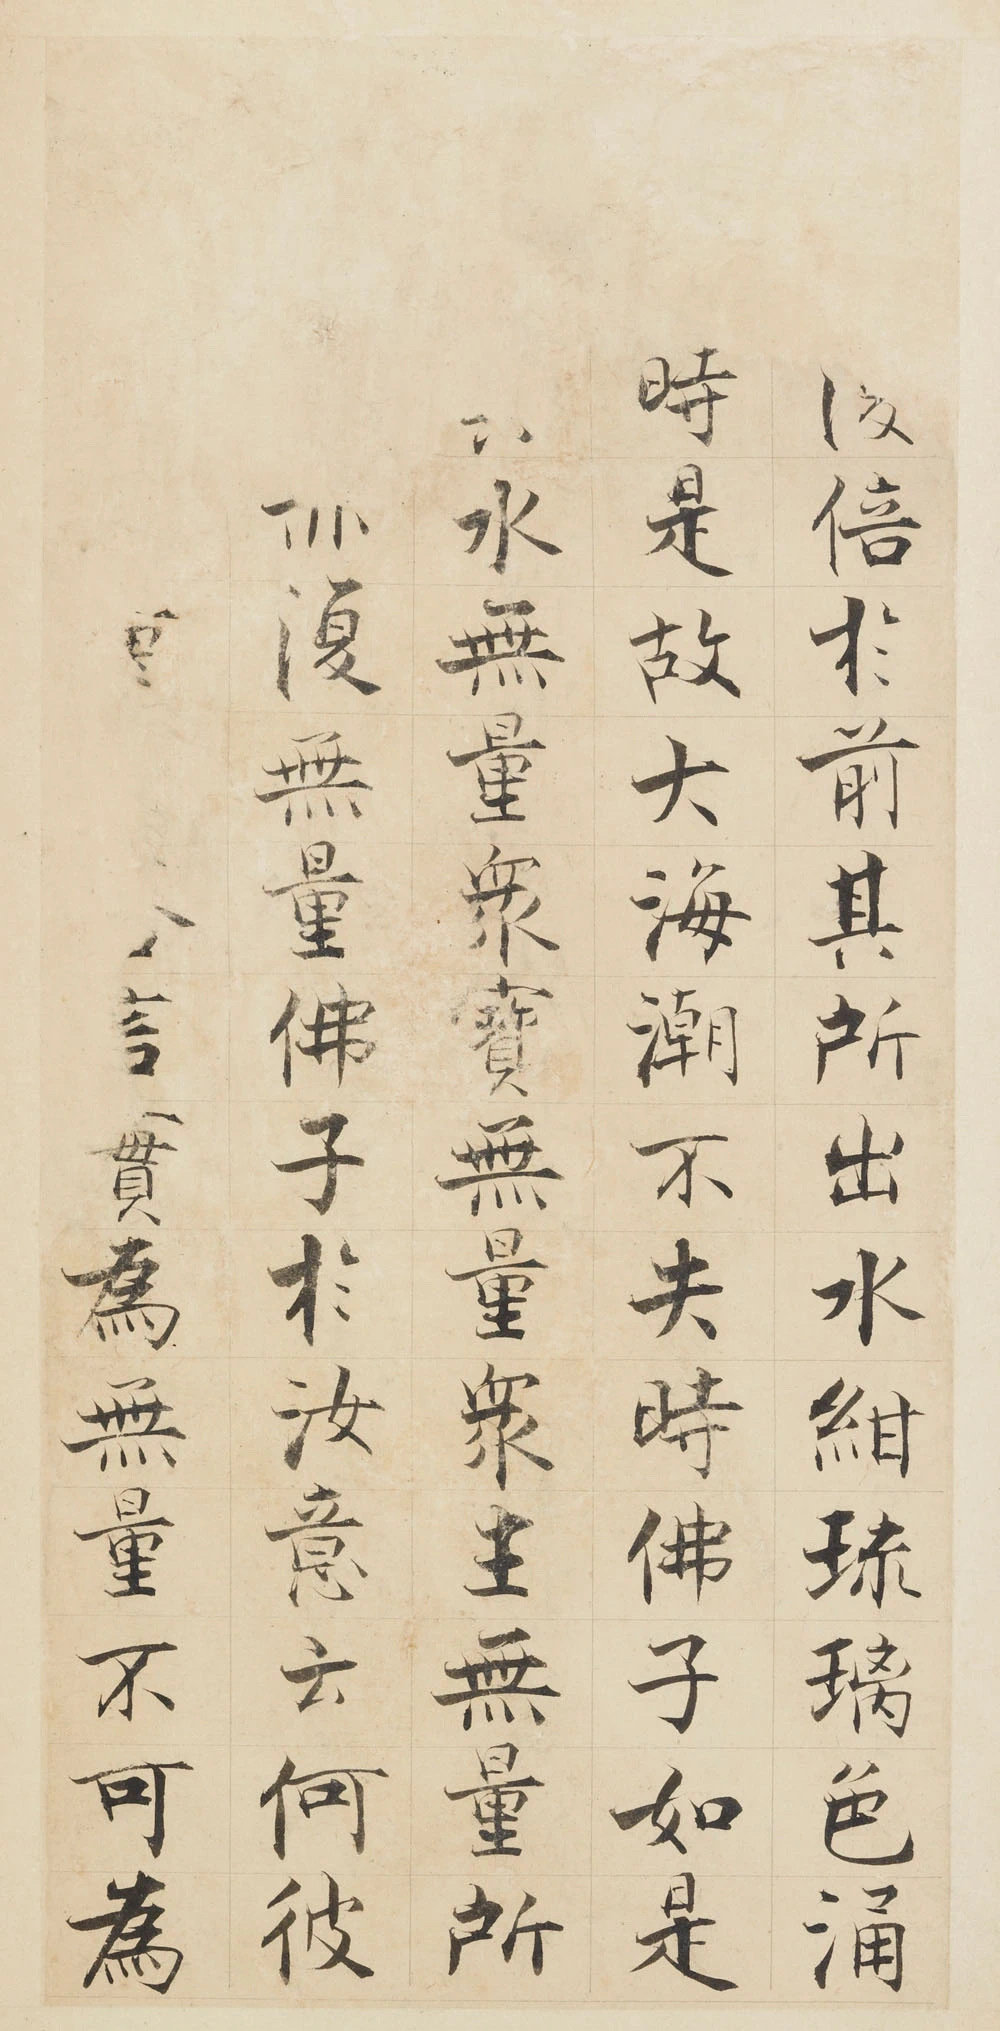 復倍於前其所出水紺琉璃色涌
時是故大海潮不失時佛子如是
水無量眾寶無量眾生無量所
亦復無量佛子於汝意云何彼
言實為無量不可為